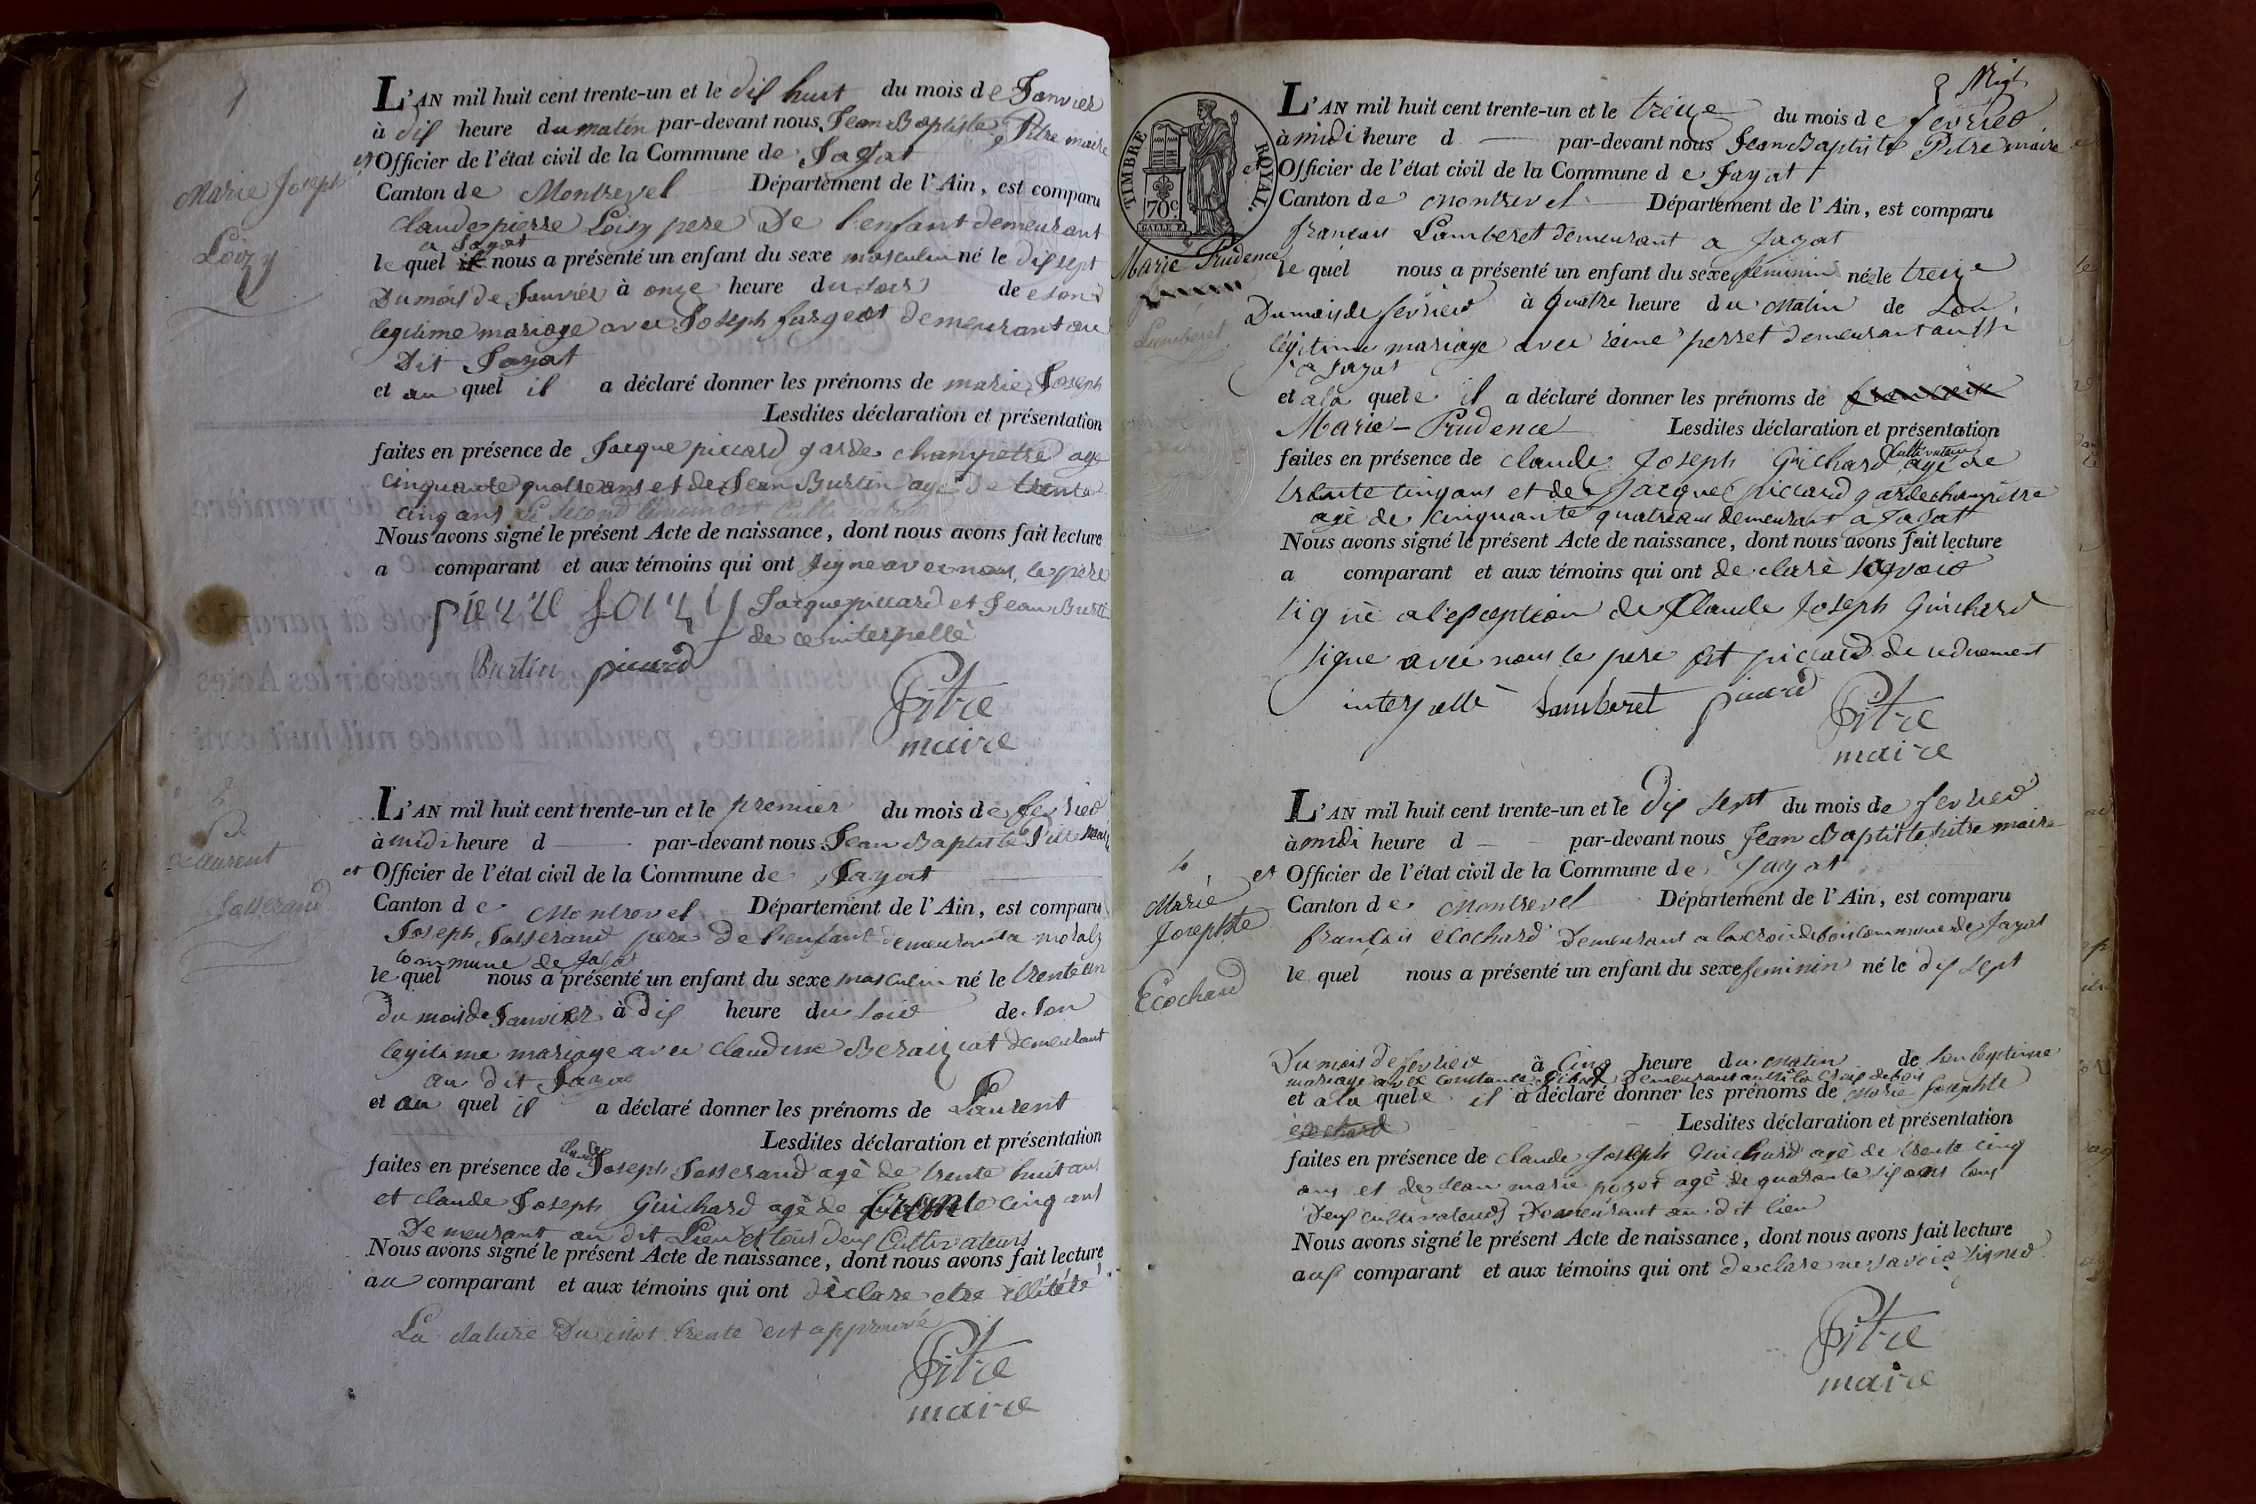 1
Marie Joseph
Loizy
L'AN mil huit cent trente-un et le dix huit du mois de Janvier
à dix heure du matin par-devant nous Jean Baptiste Pitre maire
et Officier de l'état civil de la Commune de Jayat
Canton de Montrevel Département de l'Ain, est comparu
claude pierre Loisy pere De l'enfant demeurant
a Jayat
le quel nous a présenté un enfant du sexe masculin né le dix sept
Du mois de Janvier à onze heure du soir de son
legitime mariage avec Joseph fargeot demeurant au
Dit Jayat
et au quel il a déclaré donner les prénoms de marie Joseph
Lesdites déclaration et présentation
faites en présence de Jacque piccard garde champetre age
cinquante quatre ans et de Jean Burtin agé de trente
cinq ans Le second temoin est
Nous avons signé le présent Acte de naissance, dont nous avons fait lecture
a comparant et aux témoins qui ont signe avec nous le pere
pierre Loizy Jacque piccard et Jean Burtin
de ce interpellè
Burtin picard
Pitre
maire
2
Laurent
Josserand
L'AN mil huit cent trente-un et le premier du mois de fevrier
à midi heure d par-devant nous Jean Baptiste Pitre maire
et Officier de l'état civil de la Commune de Jayat
Canton de Montrevel Département de l'Ain, est comparu
Joseph Josserand pere de l'enfant demeurant a
commune de Jayat
le quel nous a présenté un enfant du sexe masculin né le trente un
du mois de Janvier à dix heure du soir de son
legitime mariage avec claudine Beraiziat demeurant
au dit Jayat
et au quel il a déclaré donner les prénoms de Laurent
Lesdites déclaration et présentation
faites en présence de claude Joseph Josserand agè de trente huit ans
et claude Joseph Guichard agè de trente cinq ans
Demeurant au dit Lieu et tous deux Cultivateurs
Nous avons signé le présent Acte de naissance, dont nous avons fait lecture
au comparant et aux témoins qui ont dèclare etre illétéré
La rature Du mot trente est approuvé
Pitre
maire
TIMBRE ROYAL
70c
3
Marie Prudence
Lamberet
L'AN mil huit cent trente-un et le treize du mois de fevrier
à midi heure d par-devant nous Jean Baptiste Pitre maire
et Officier de l'état civil de la Commune de Jayat
Canton de Montrevel Département de l'Ain, est comparu
francois Lamberet demeurant a Jayat
le quel nous a présenté un enfant du sexe feminin né le treize
Du mois de fevrier à quatre heure du matin de son
légitime mariage avec reine perret demeurant aussi
a Jayat
et a la quele il a déclaré donner les prénoms de
Marie-Prudence Lesdites déclaration et présentation
faites en présence de claude Joseph Guichard Cultivateur agé de
trente cinq ans et de Jacque piccard garde champètre
agè de cinquante quatre ans demeurant a Jayat
Nous avons signé le présent Acte de naissance, dont nous avons fait lecture
a comparant et aux témoins qui ont de clarè savoir
signè a l'exception de Claude Joseph Guichard
signe avec nous le pere et piccard de
interpellè Lamberet picard
Pitre
maire
4
Marie
Josephte
Ecochard
L'AN mil huit cent trente-un et le dix sept du mois de fevrier
à midi heure d par-devant nous Jean Baptiste Pitre maire
et Officier de l'état civil de la Commune de Jayat
Canton de Montrevel Département de l'Ain, est comparu
français ecochard Demeurant a la croix de bois commune de Jayat
le quel nous a présenté un enfant du sexe feminin né le dix sept
Du mois de fevrier à cinq heure du matin de son legitime
mariage avec constance Demeurant aussi la Croix de bois
et a la quele il a déclaré donner les prénoms de Marie Josephte
ecochard
Lesdites déclaration et présentation
faites en présence de claude Joseph Guichard agè de trente cinq
ans et de Jean marie agè de quarante six ans tous
Deux cultivateurs Demeurant au dit lieu
Nous avons signé le présent Acte de naissance, dont nous avons fait lecture
aux comparant et aux témoins qui ont de clare ne savoir signer
Pitre
maire